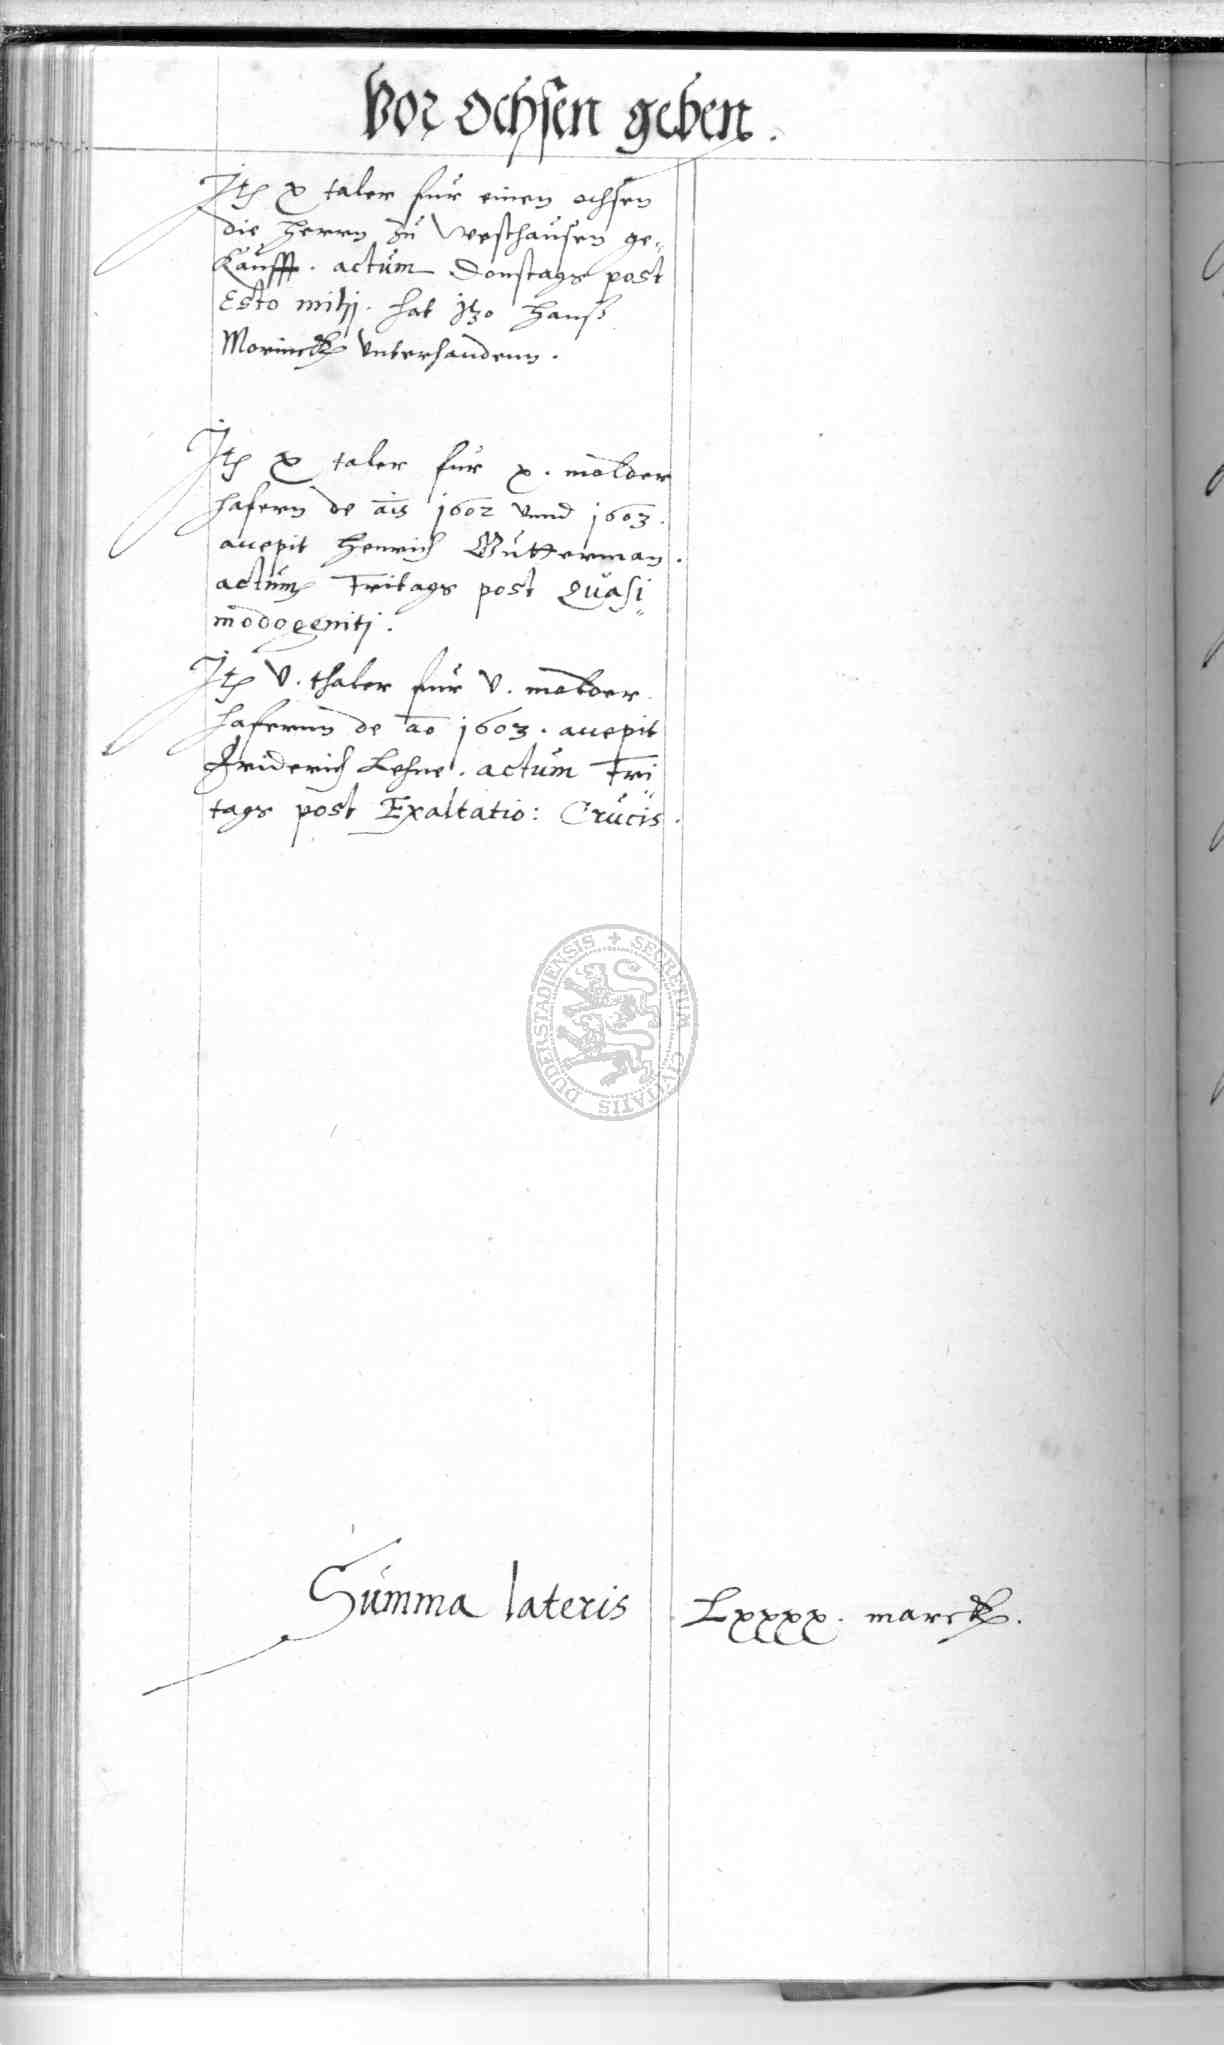 Vor ochsen geben.
Itē x taler für einen ochsen
die Herrn zu Westhausen ge-
kaufft. actum Donstags post
Esto mihi. hat Itzo Hanß
Morinck Unterhandenn.
Itē x taler für x. molder
hafern de aīs 1602 unnd 1603.
accepit Henrich Gutterman.
actum Fritags post Quasi-
modogeniti.
Itē v. thaler für v. molder
hafernn de ao 1603. accepit
Friderich Lehne. actum Fri-
tags post Exaltatio: Crucis.
SECRETUM CIVITATIS DUDERSTADIENSIS
Summa lateris Lxxxx. marck.